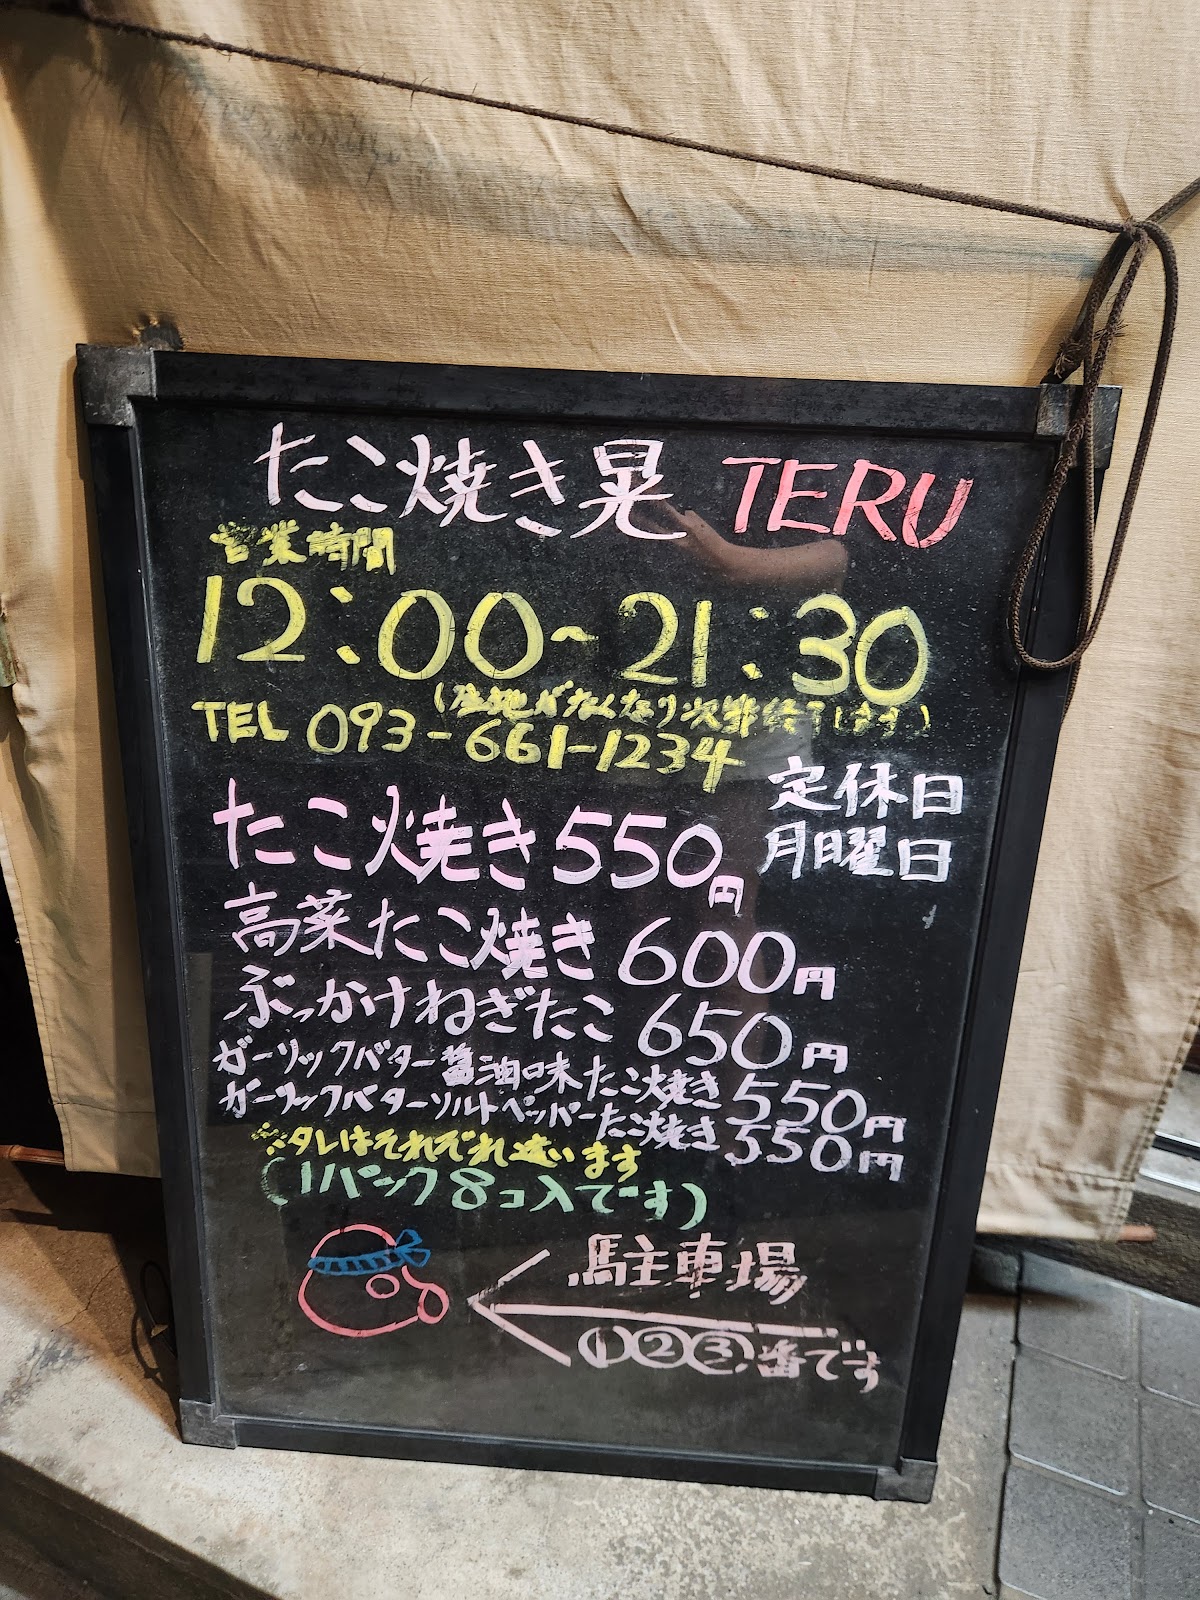 たこ焼き晃 TERU
営業時間
12:00~21:30
(生地がなくなり次第終了します)
TEL 093-661-1234
定休日
月曜日
たこ焼き550円
高菜たこ焼き 600円
ぶっかけねぎたこ 650円
ガーリックバター醤油味たこ焼き550円
ガーリックバターソルトペッパーたこ焼き550円
※タレはそれぞれ違います
(1パック8コ入でーす)
駐車場
①②③番でーす